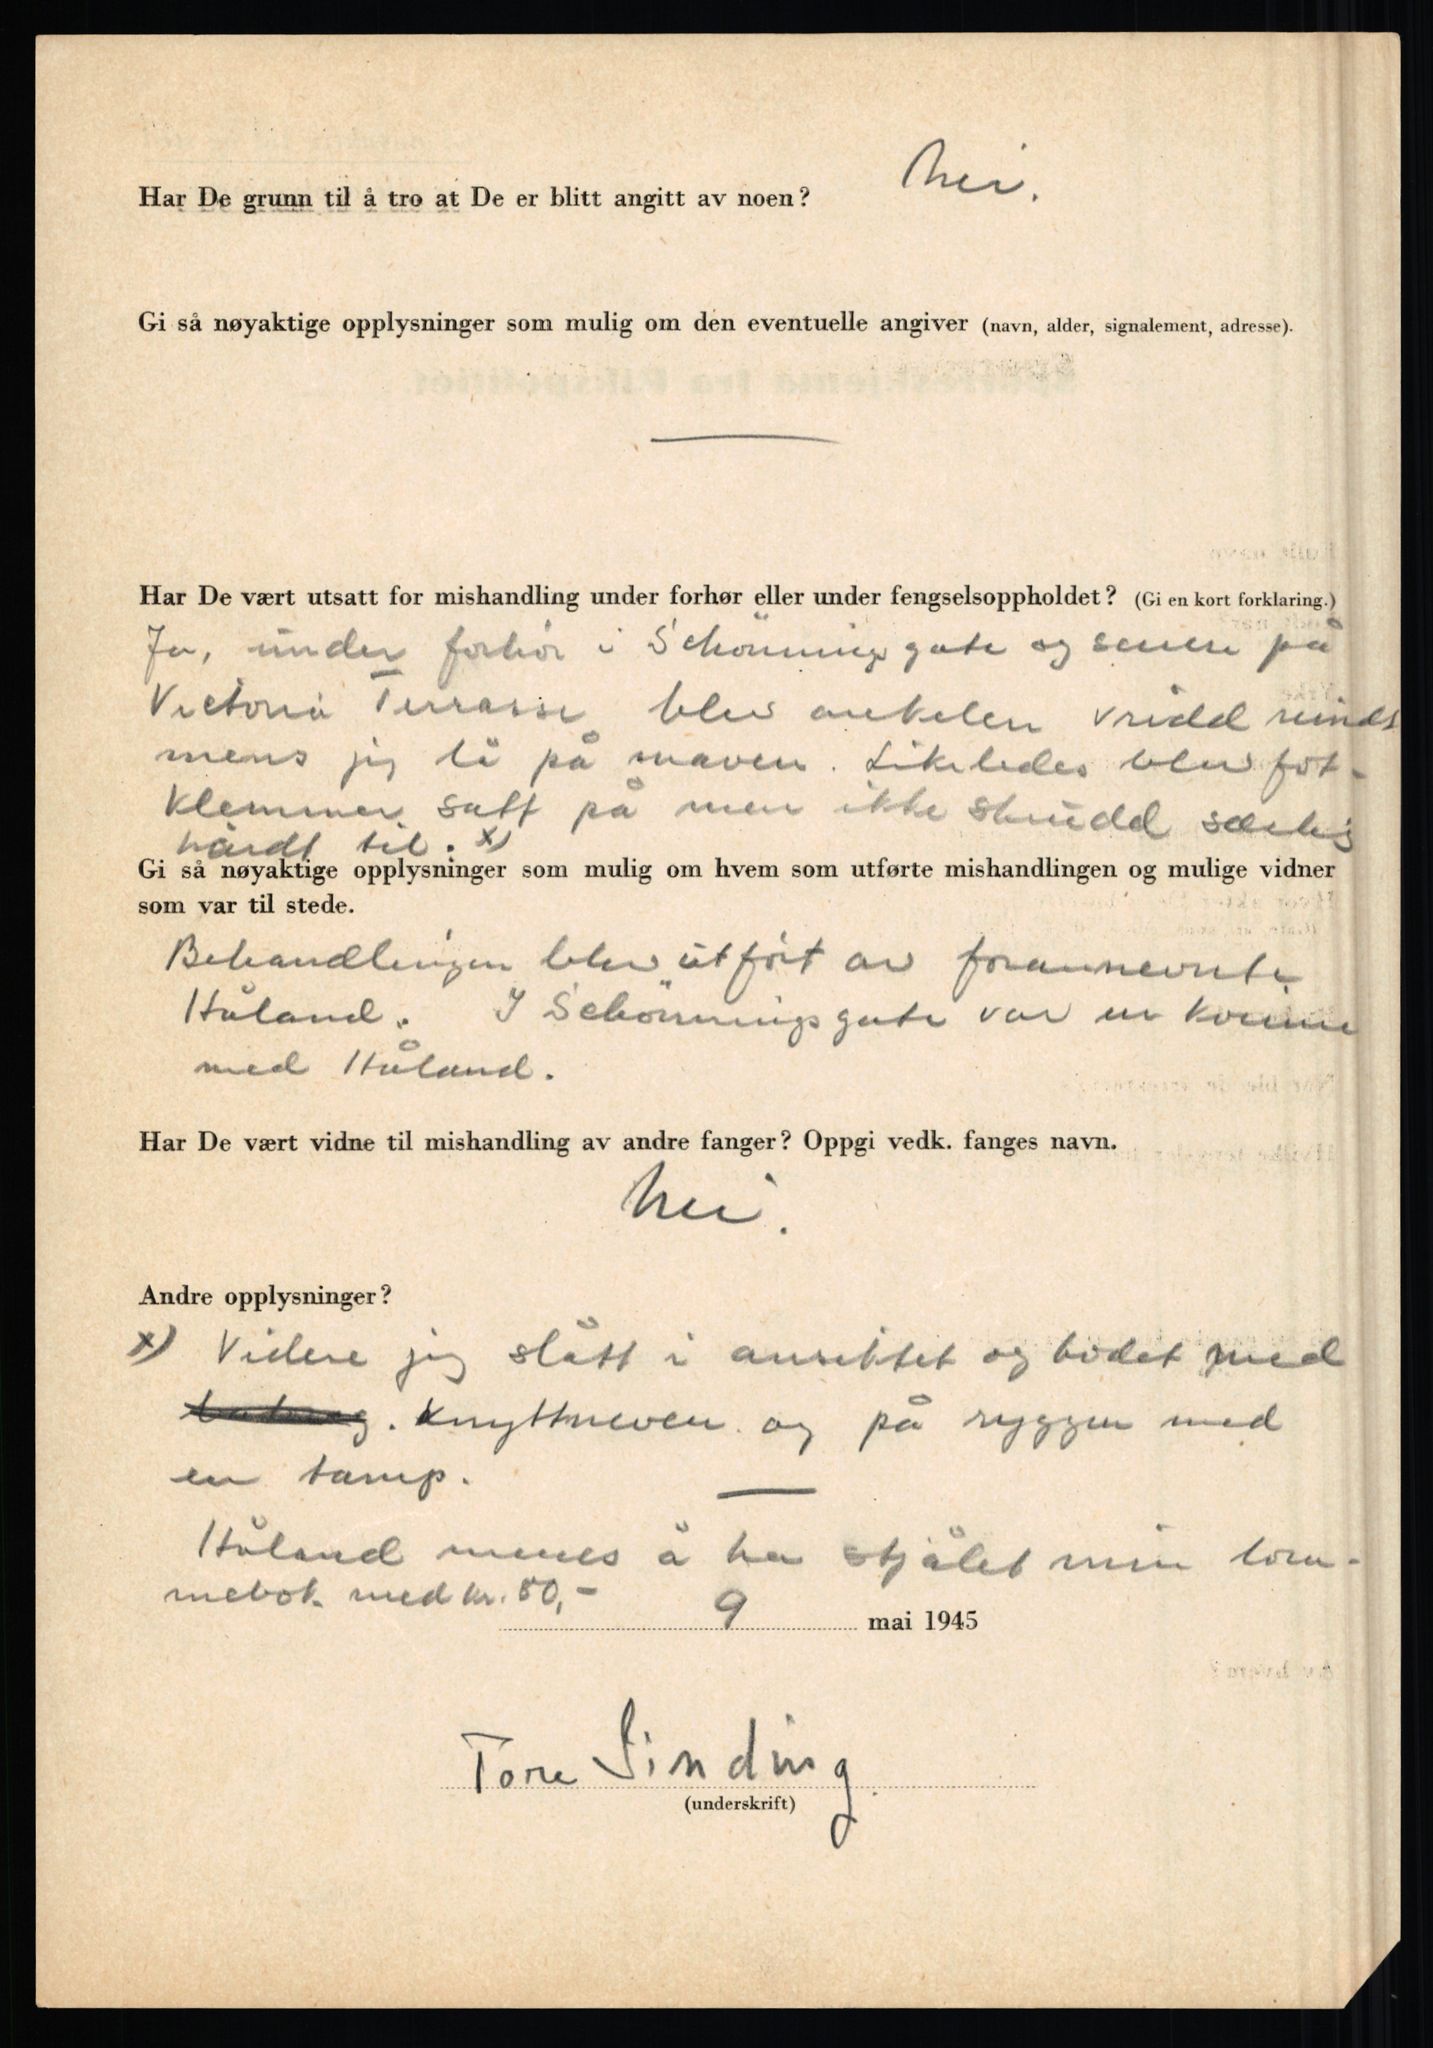 Har De grunn til å tro at De er blitt angitt av noen? Nei.
Gi så nøyaktige opplysninger som mulig om den eventuelle angiver (navn, alder, signalement, adresse).
Har De vært utsatt for mishandling under forhør eller under fengselsoppholdet? (Gi en kort forklaring.)
Ja, under forhör i Schönnings gate og senere på
Victoria Terrasse blev ankelen vridd rundt
mens jeg lå på maven. Likeledes blev fot-
klemmer satt på men ikke skrudd særlig
hårdt til. x)
Gi så nøyaktige opplysninger som mulig om hvem som utførte mishandlingen og mulige vidner
som var til stede.
Behandlingen blev utført av forannevnte
Håland. I Schönnings gate var en kvinne
med Håland.
Har De vært vidne til mishandling av andre fanger? Oppgi vedk. fanges navn.
Nei.
Andre opplysninger?
x) Videre jeg slått i ansiktet og hodet med
knyttneven og på ryggen med
en tamp.
Håland menes å ha stjålet min lom-
mebok med kr. 50,-
9 mai 1945
Tore Sinding.
(underskrift)